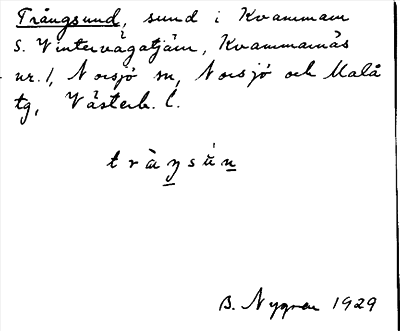 Trångsund, sund i Kvammarn
S. Vintervägatjärn, Kvammarnäs
nr. 1, Norsjö sn, Norsjö och Malå
tg, Västerb. l.
B. Nygren 1929